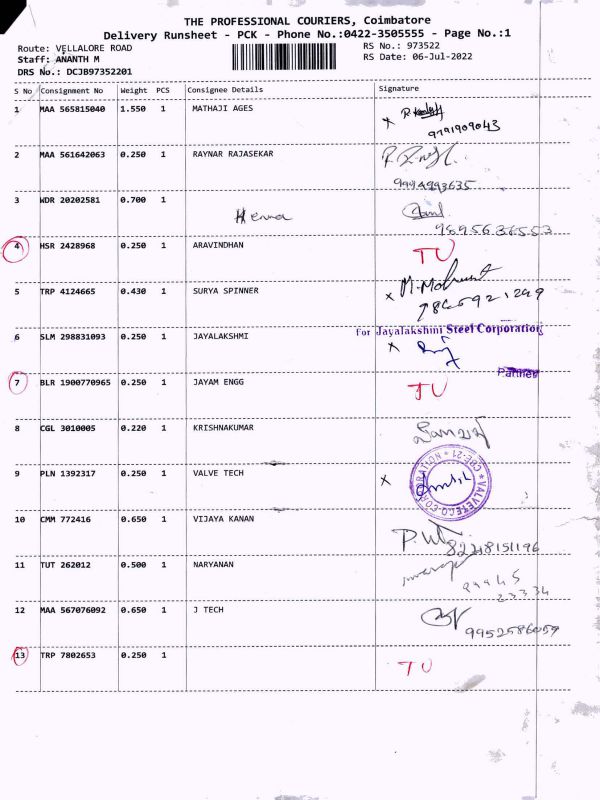 THE PROFESSIONAL COURIERS, Coimbatore
Delivery Runsheet - PCK - Phone No.:0422-3505555 - Page No.:1
Route: VELLALORE ROAD
RS No.: 973522
Staff: ANANTH M
RS Date: 06-Jul-2022
DRS No.: DCJB97352201
S No Consignment No Weight PCS Consignee Details Signature
1 MAA 565815040 1.550 1 MATHAJI AGES
x
9791909043
2 MAA 561642063 0.250 1 RAYNAR RAJASEKAR
9994993635
3 WDR 20202581 0.700 1
Hema
4 HSR 2428968 0.250 1 ARAVINDHAN TU
5 TRP 4124665 0.430 1 SURYA SPINNER
x
6 SLM 298831093 0.250 1 JAYALAKSHMI
For Jayalakshmi Steel Corporation
x
Partner
7 BLR 1900770965 0.250 1 JAYAM ENGG TU
8 CGL 3010005 0.220 1 KRISHNAKUMAR
9 PLN 1392317 0.250 1 VALVE TECH
x
10 CMM 772416 0.650 1 VIJAYA KANAN
8248151196
11 TUT 262012 0.500 1 NARYANAN
99445
23334
12 MAA 567076092 0.650 1 J TECH
9952586059
13 TRP 7802653 0.250 1 TU